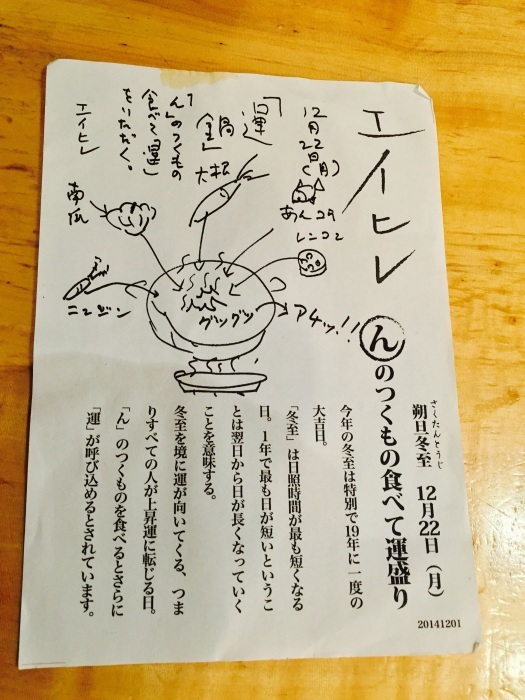 エイヒレ
12月22日(月)
「運鍋」
「ん」のつくもの
食べて「運」
をいただく。
エイヒレ
あんコウ
レンコン
大根
南瓜
ニンジン
グツグツ
アチッ!!
さくたんとうじ
朔旦冬至 12月22日(月)
んのつくもの食べて運盛り
今年の冬至は特別で19年に一度の
大吉日。
「冬至」は日照時間が最も短くなる
日。1年で最も日が短いというこ
とは翌日から日が長くなっていく
ことを意味する。
冬至を境に運が向いてくる、つま
りすべての人が上昇運に転じる日。
「ん」のつくものを食べるとさらに
「運」が呼び込めるとされています。
20141201